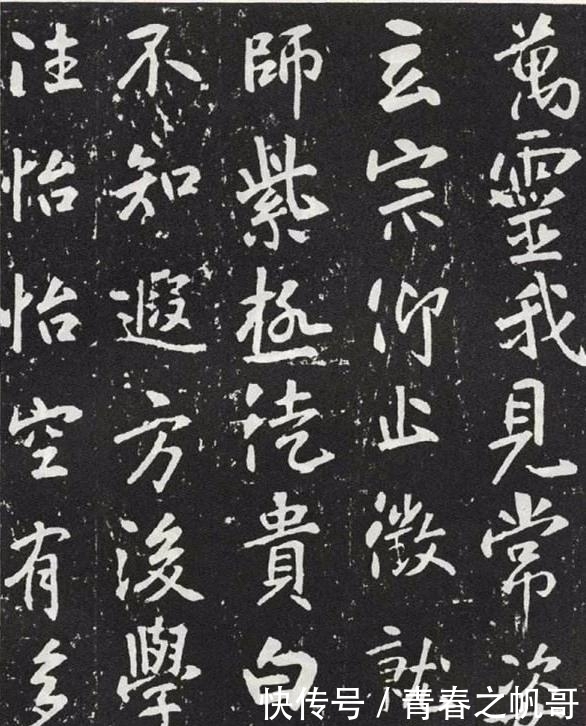 萬靈我見常
玄宗仰止徵就
師紫極貴
不知遐方後學
怡怡空有多
快传号/青春之帆哥